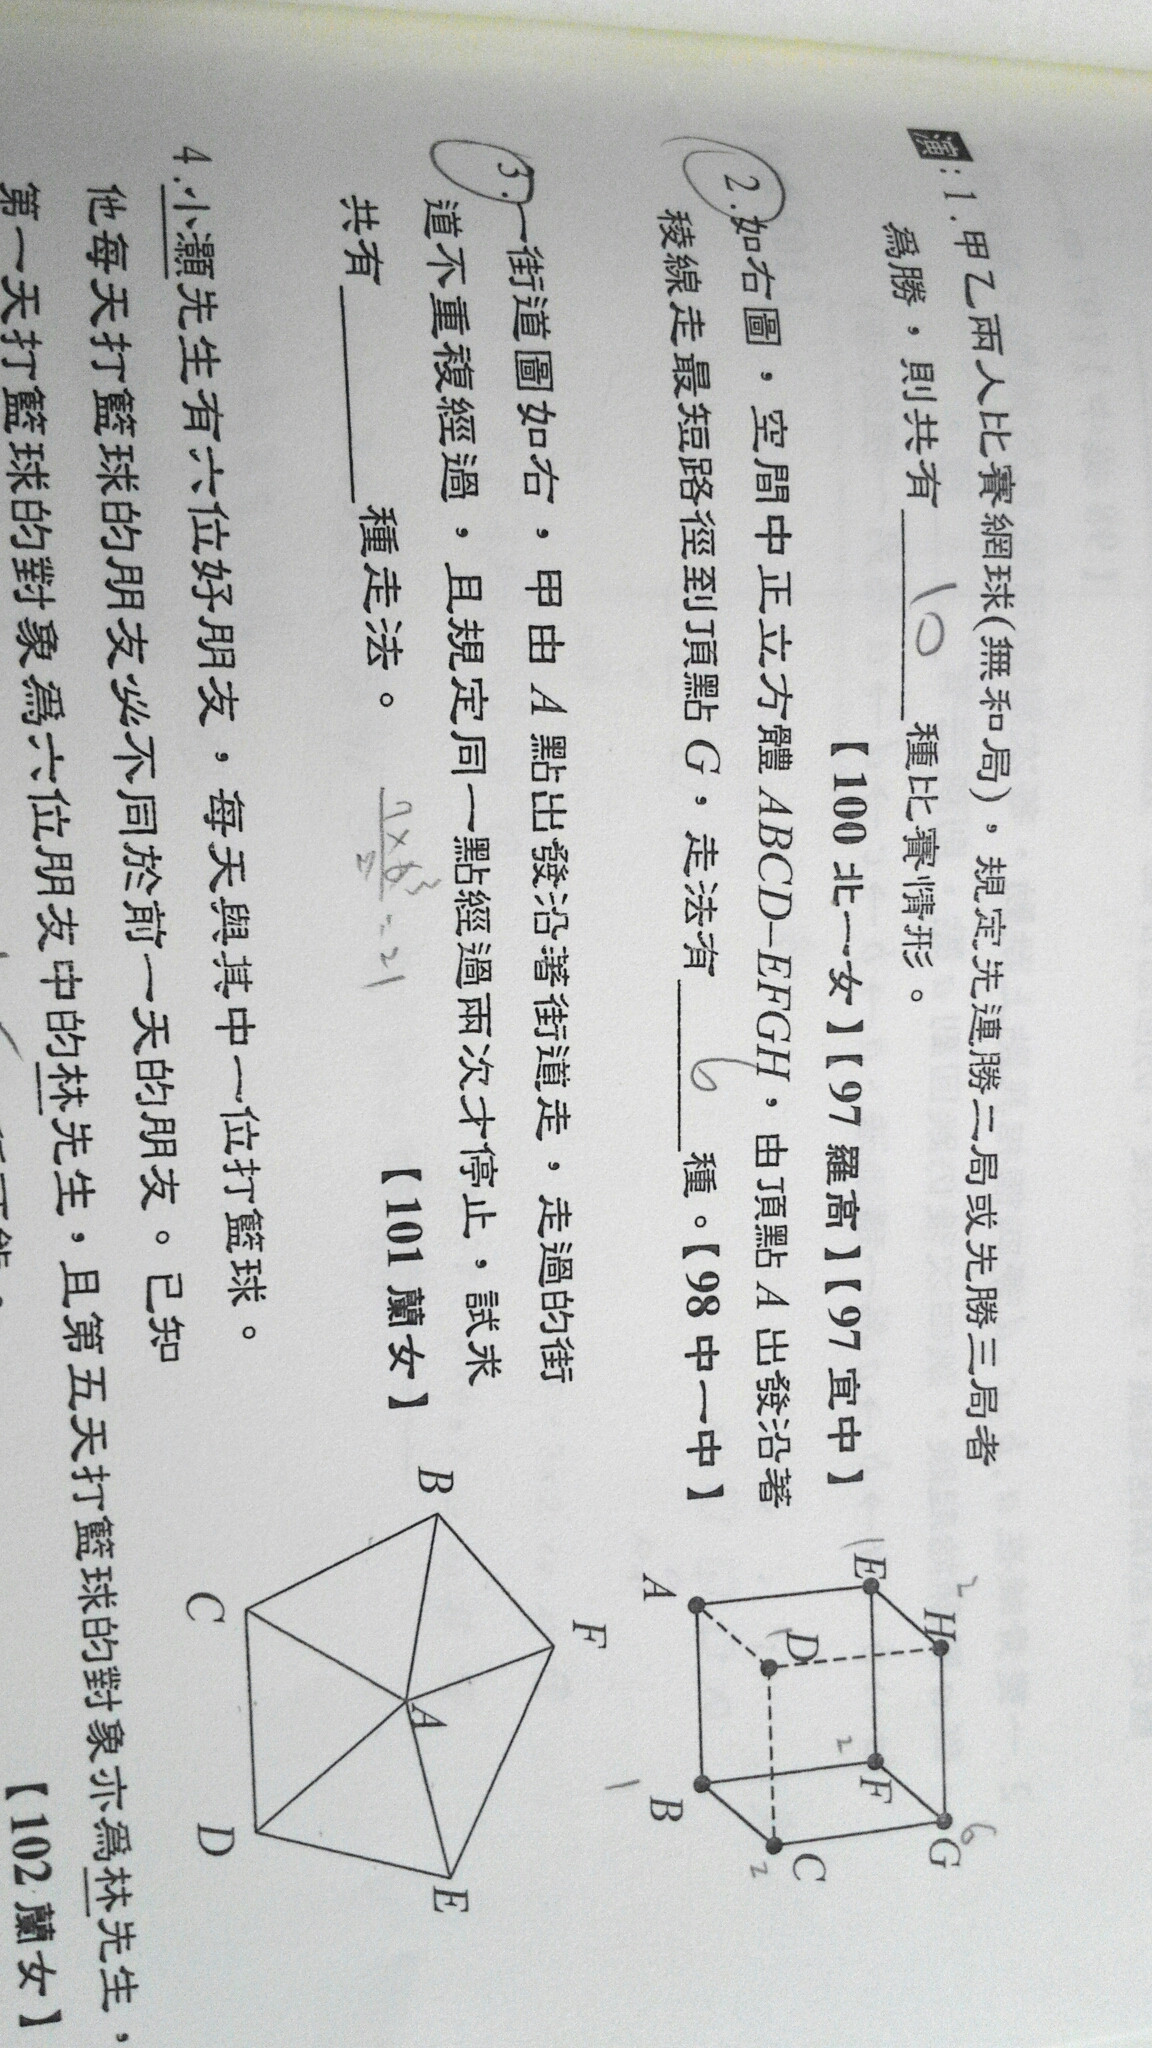 演:1.甲乙兩人比賽網球(無和局),規定先連勝二局或先勝三局者
為勝,則共有 10 種比賽情形。
【100 北一女】【97 羅高】【97 宜中】
2.如右圖,空間中正立方體 ABCD-EFGH,由頂點 A 出發沿著
稜線走最短路徑到頂點 G,走法有 6 種。【98 中一中】
1 E
2 H
A
D
2 F
G 6
1 B
C 2
3.一街道圖如右,甲由 A 點出發沿著街道走,走過的街
道不重複經過,且規定同一點經過兩次才停止,試求
共有 種走法。
【101 蘭女】
7×6 3
2 =21
F
B
A
E
C
D
4.小灝先生有六位好朋友,每天與其中一位打籃球。
他每天打籃球的朋友必不同於前一天的朋友。已知
第一天打籃球的對象為六位朋友中的林先生,且第五天打籃球的對象亦為林先生,
【102 蘭女】